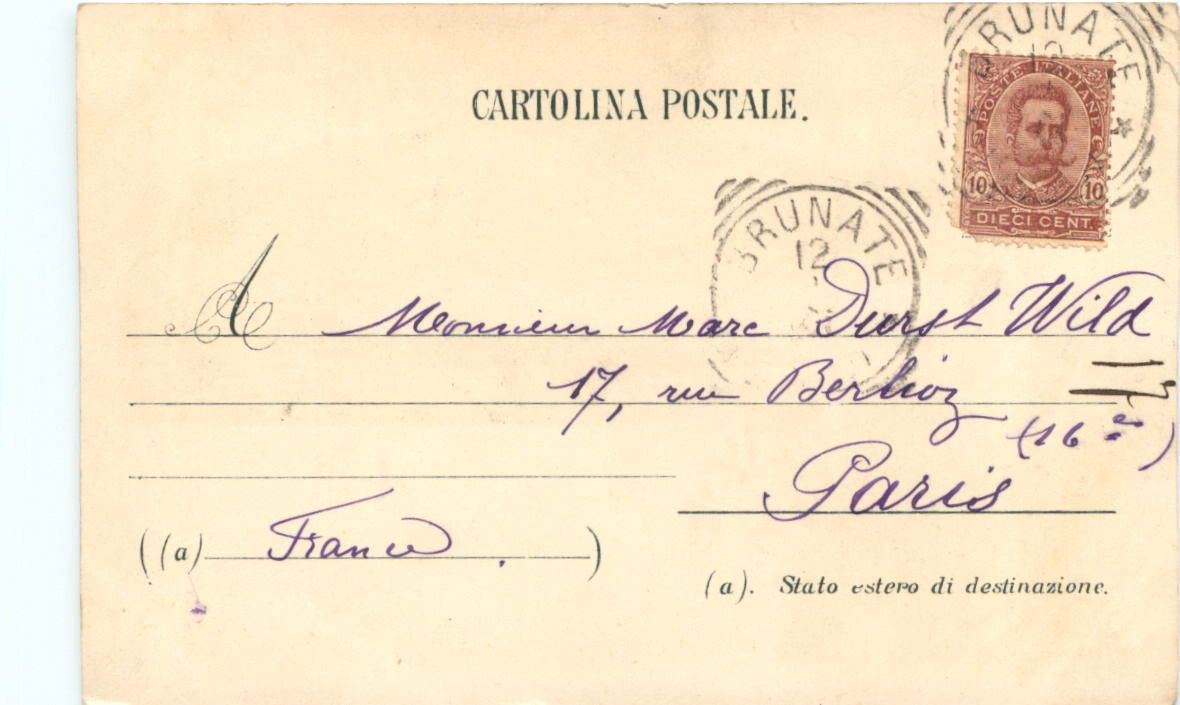 BRUNATE
12
POSTE ITALIANE
10 10
DIECI CENT.
CARTOLINA POSTALE.
BRUNATE
12
A Monsieur Marc Durst Wild
17, rue Berlioz
17
(16e)
Paris
((a) France.)
(a). Stato estero di destinazione.